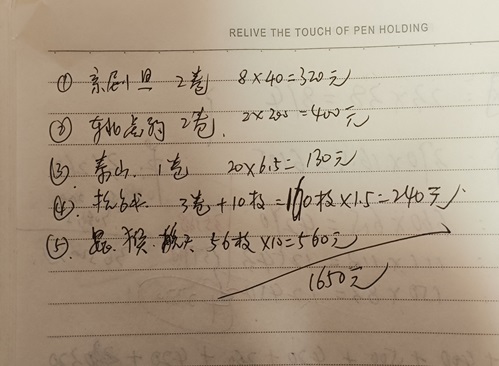 RELIVE THE TOUCH OF PEN HOLDING
① 京剧旦 2卷 8×40=320元
② 东北虎豹 2卷. 2×200=400元
③. 泰山. 1卷 20×6.5=130元
④. 3卷+10枚=160枚×1.5=240元
⑤. 猴 56枚×10=560元
1650元